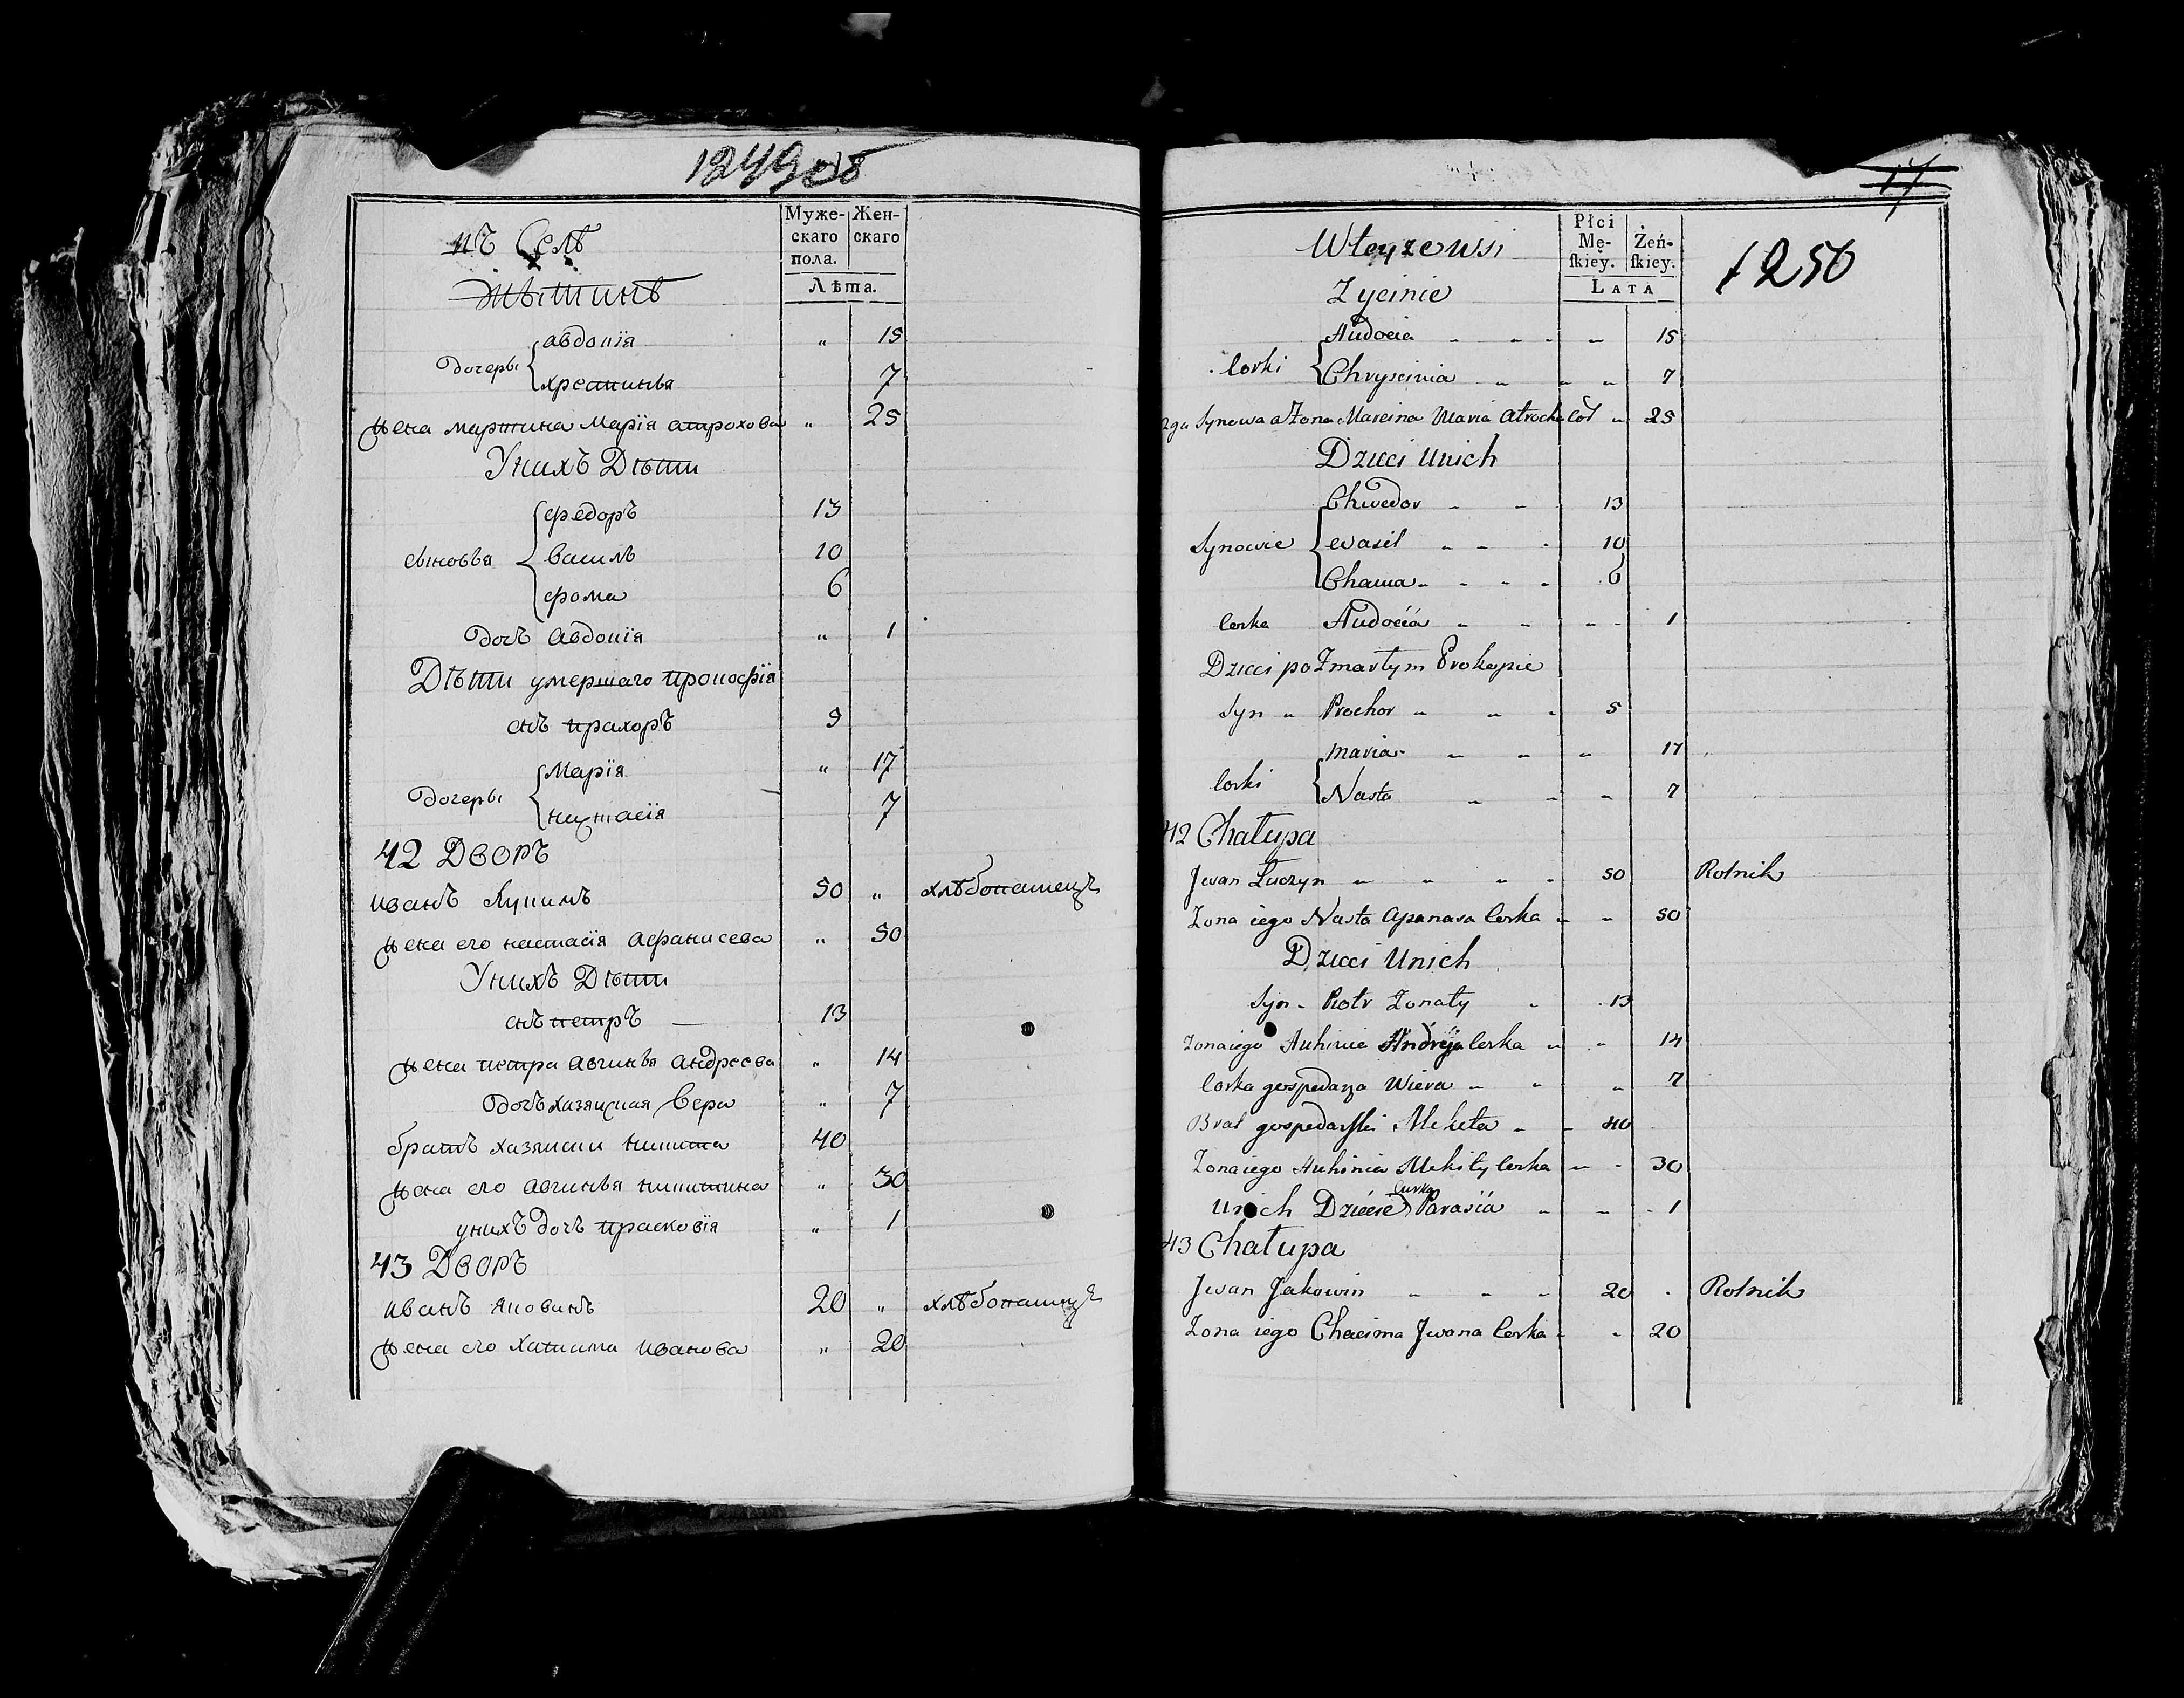 1249 об
въ Селѣ
Жытинѣ
Муже-
скаго
пола.
Жен-
скаго
Лѣта.
Дочеры { авдопія " 15
хрестинья 7
жена мартина Марія атрохова " 25
Унихъ Дѣти
сыновья { федоръ 13
василь 10
фома 6
дочь авдопія " 1
Дѣти умершаго прокофія
снъ прахоръ 9
Дочеры { Марія " 17
настасія 7
42 Дворъ
иванъ Лучинъ 50 " хлѣбопашецъ
жена его настасія афанисева " 50
Унихъ Дѣти
снъ петръ 13
жена петра авгинья андреева " 14
дочь хазяиская Вера " 7
братъ хазяиски никита 40
жена его авгинья никитина " 30
унихъ дочь прасковія " 1
43 Дворъ
иванъ яковинъ 20 " хлѣбопашецъ
жена его хатима иванова " 20
17
1250
W teyże wsi
Zycinie
Płci
Mę-
ſkiey.
Żeń-
ſkiey.
LATA
Corki { Audocia 15
Chryscinia 7
2ga Synowa a Zona Marcina Maria Atrocha Cor 25
Dzieci Unich
Synowie { Chwedor 13
Wasil 10
Chama 6
Corka Audocia 1
Dzieci po Zmarłym Prokopie
Syn " Prochor 5
Corki { Maria 17
Nasta 7
42 Chałupa
Jwan Łuczyn 50 Rolnik
Zona iego Nasta Apanasa Corka 50
Dzieci Unich
Syn Piotr Zonaty 13
Zona iego Auhinia Andreja Corka 14
Corka gospodarza Wiera 7
Brat gospodarſki Mekita 40
Zona iego Auhinia Mikity Corka 30
Unich Dziecie Curka Parasia 1
43 Chałupa
Jwan Jakowin 20 Rolnik
Zona iego Chacima Jwana Corka 20